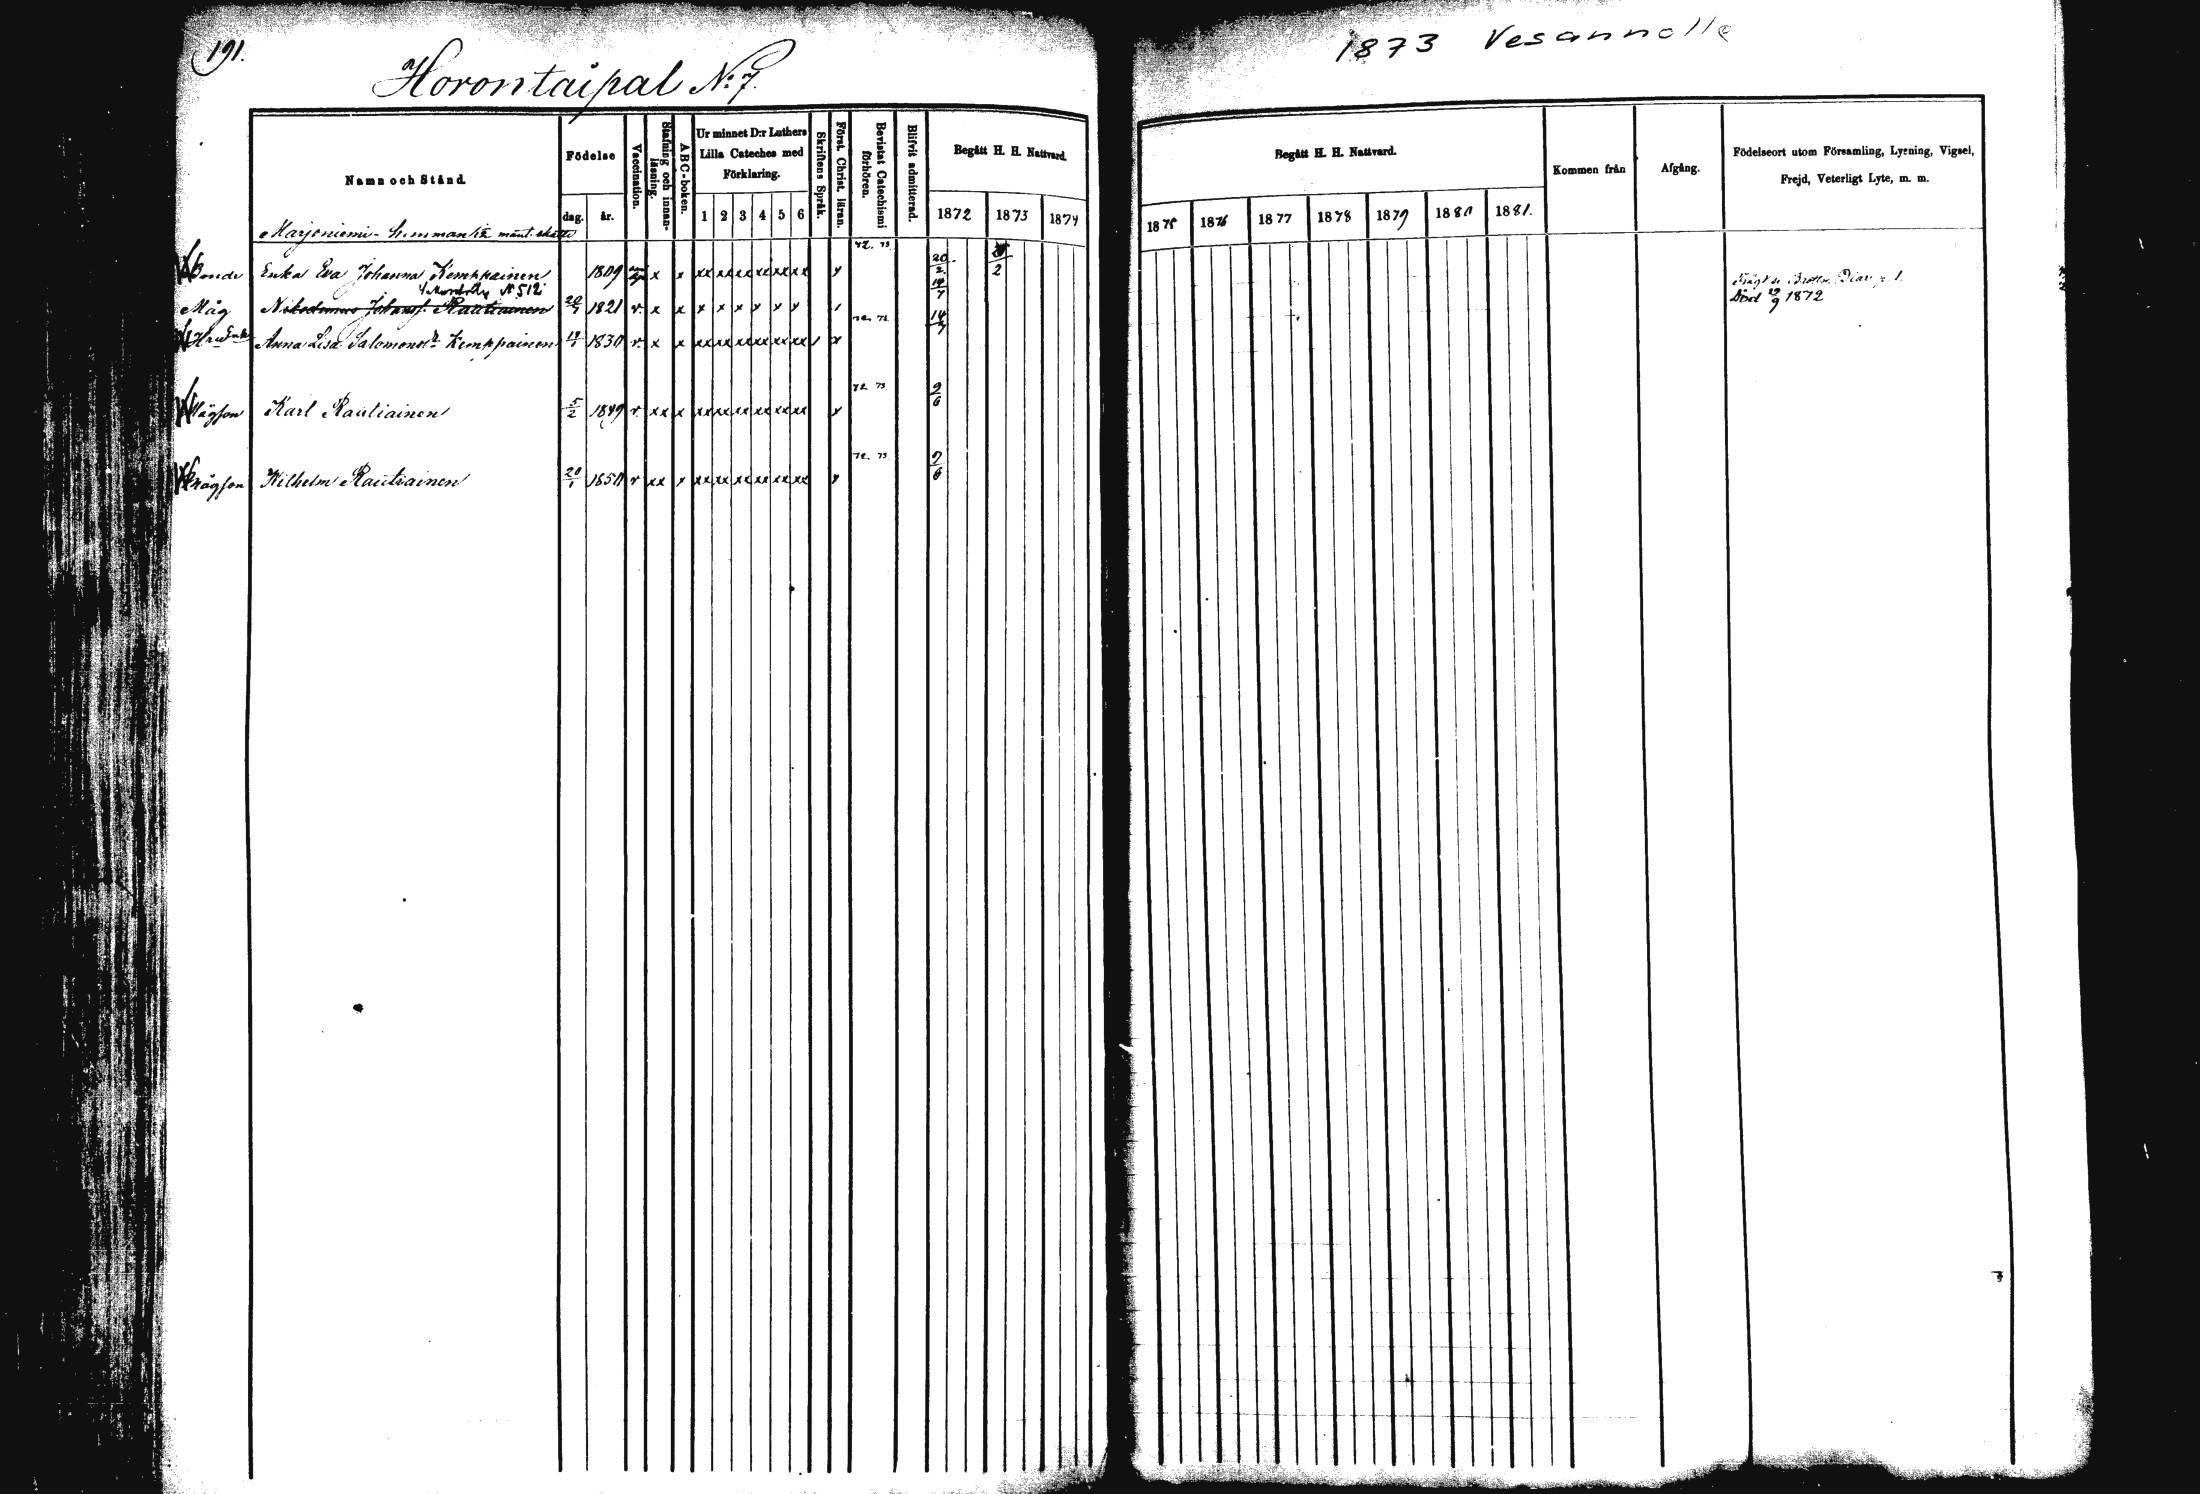 191.
Horontaipal No 7.
1873 Vesannolle
Namn och Stånd.
Födelse
dag. år.
Vaccination.
Stafning och innan-läsning.
ABC-boken.
Ur minnet D:r Luthers Lilla Cateches med Förklaring.
1 2 3 4 5 6
Skriftens Språk.
Först. Christ. läran.
Bevistat Catechismi förhören.
Blifvit admitterad.
Begått H. H. Nattvard.
1872 1873 1874
Begått H. H. Nattvard.
1875 1876 1877 1878 1879 1880 1881.
Kommen från
Afgång.
Födelseort utom Församling, Lysning, Vigsel, Frejd, Veterligt Lyte, m. m.
Marjoniemi
72. 73
Bonde Enka Eva Johanna Kemppainen 1809 x x xx xx xx xx xx xx x 20/2 2
N 512
Måg Nikodemus Johansf. Rautiainen 20/7 1821 v. x x x x x x x x 14/7 Död 29/9 1872
72. 73
Hru Enka Anna Lisa Salomonsdr Kemppainen 1830 v. x x xx xx xx xx xx xx x 14/7
72 73
Mågson Karl Rautiainen 5/2 1849 v xx x xx xx xx xx xx xx x 9/6
72. 73
Mågson Wilhelm Rautiainen 20/1 1850 v xx x xx xx xx xx xx xx x 9/6